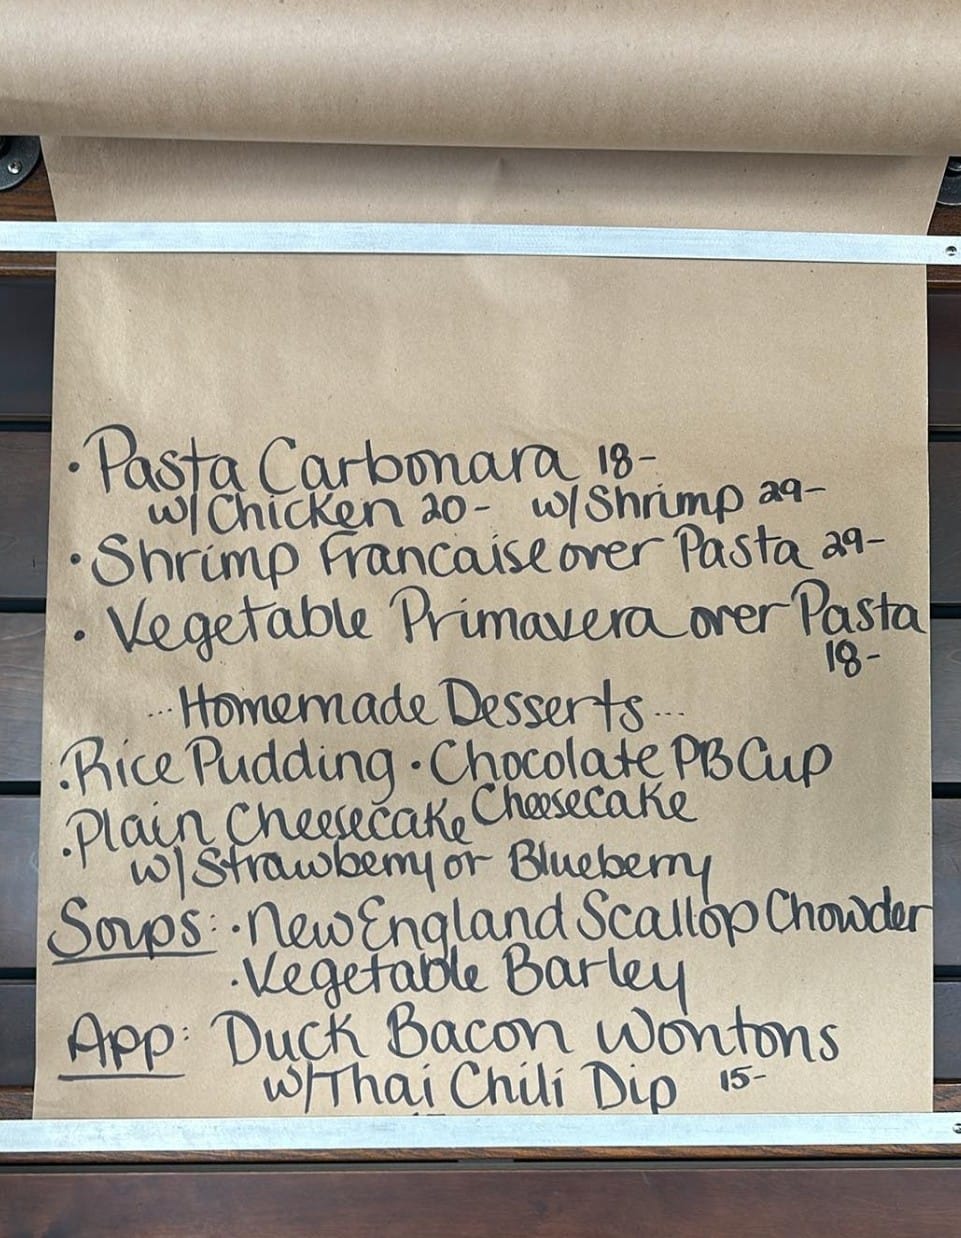 • Pasta Carbonara 18-
w/Chicken 20- w/Shrimp 29-
• Shrimp Francaise over Pasta 29-
• Vegetable Primavera over Pasta
18-
... Homemade Desserts ...
• Rice Pudding • Chocolate PB Cup
Cheesecake
• Plain Cheesecake
w/Strawberry or Blueberry
Soups: • New England Scallop Chowder
• Vegetable Barley
App: Duck Bacon Wontons
w/Thai Chili Dip 15-